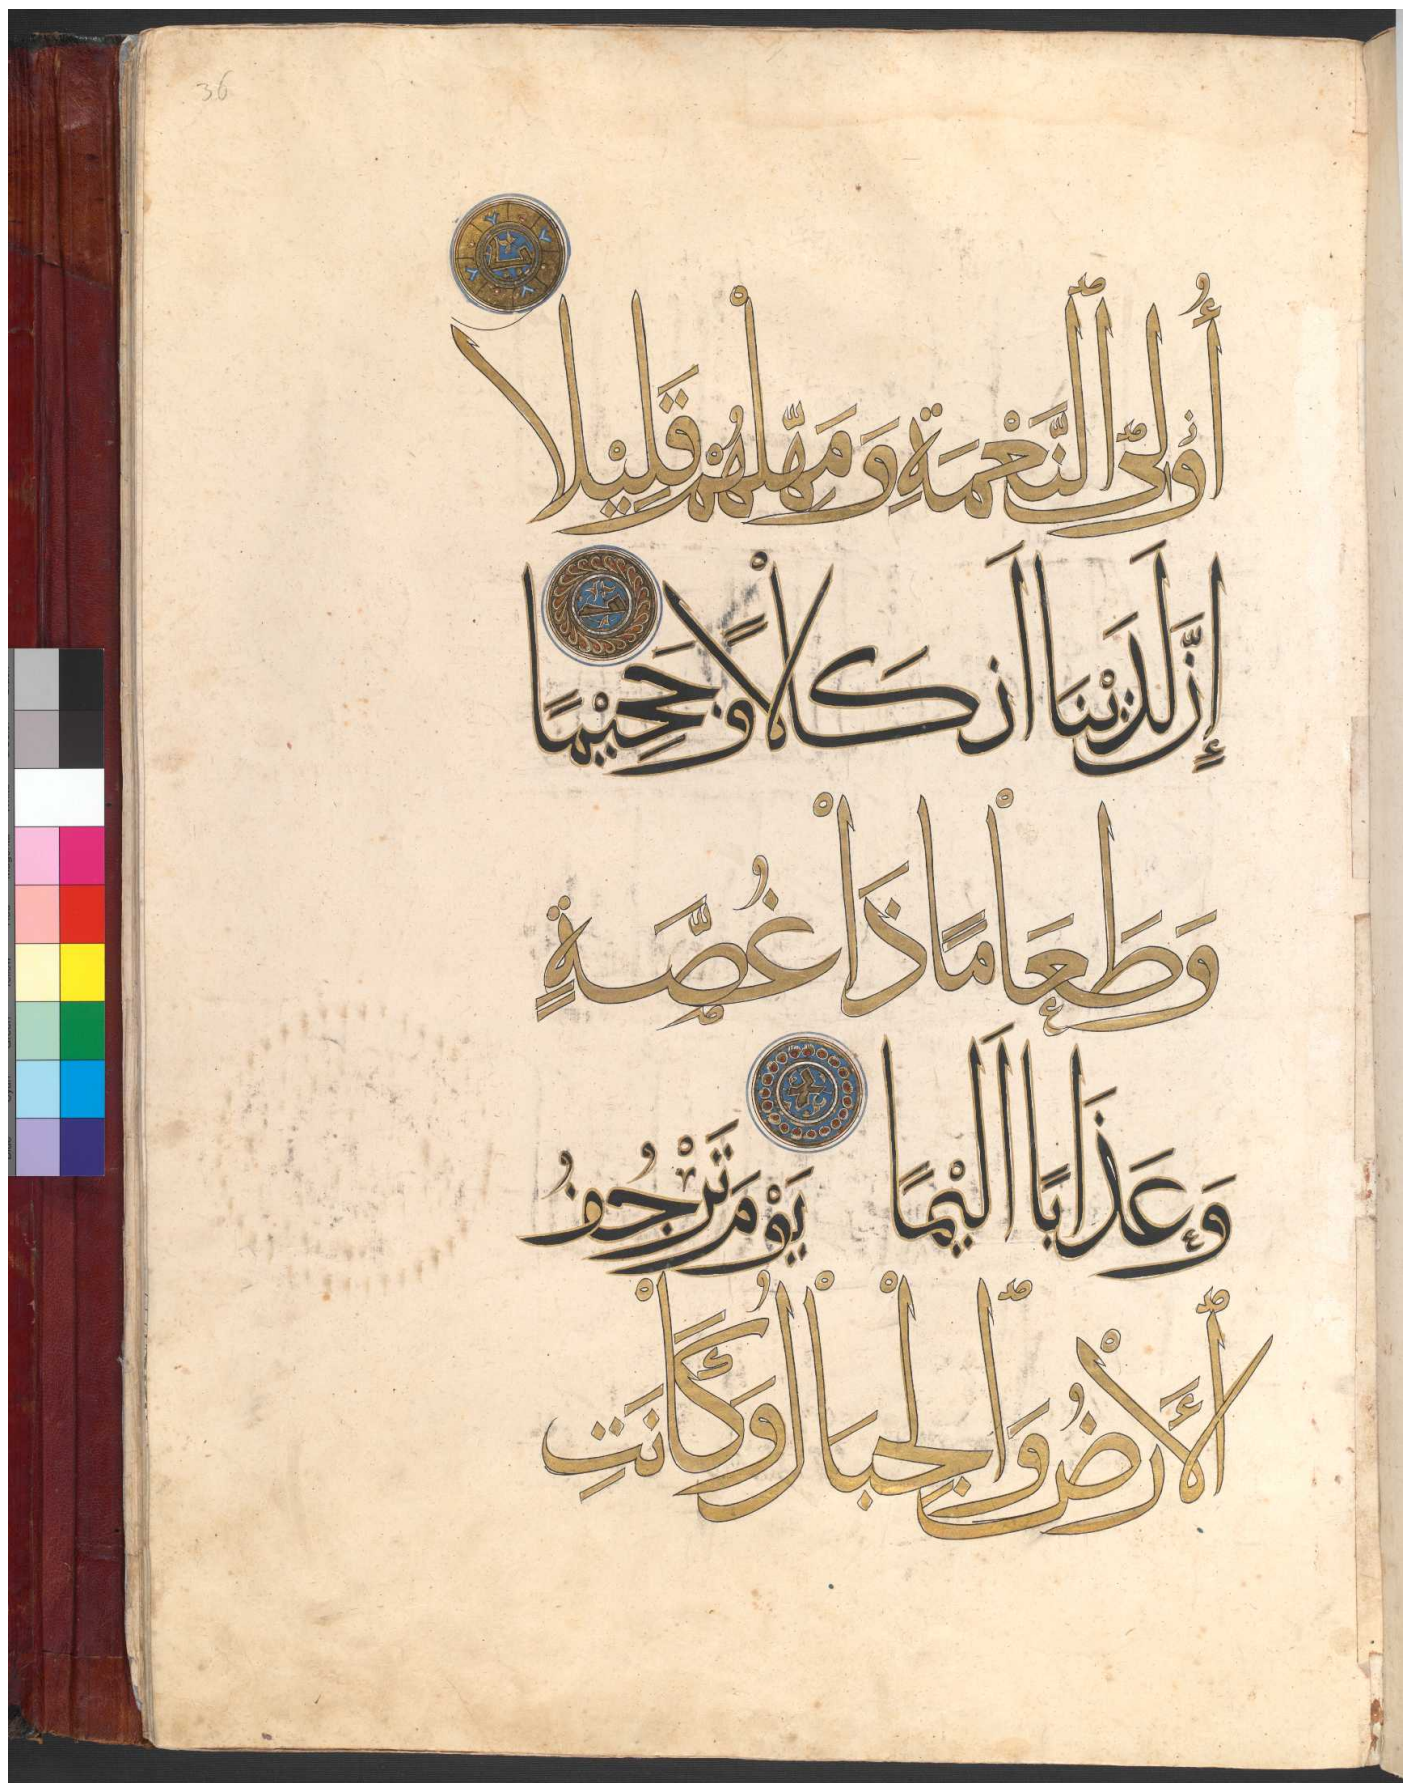 36
أُولِى ٱلنَّعْمَةِ وَمَهِّلْهُمْ قَلِيْلًا
إِنَّ لَدَيْنَا اَنكَالًا وَجَحِيْمًا
وَطَعَامًا ذَا غُصَّةٍ
وَعَذَابًا اَلِيْمًا يَوْمَ تَرْجُفُ
ٱلْأَرْضُ وَٱلْجِبَالُ وَكَانَتِ